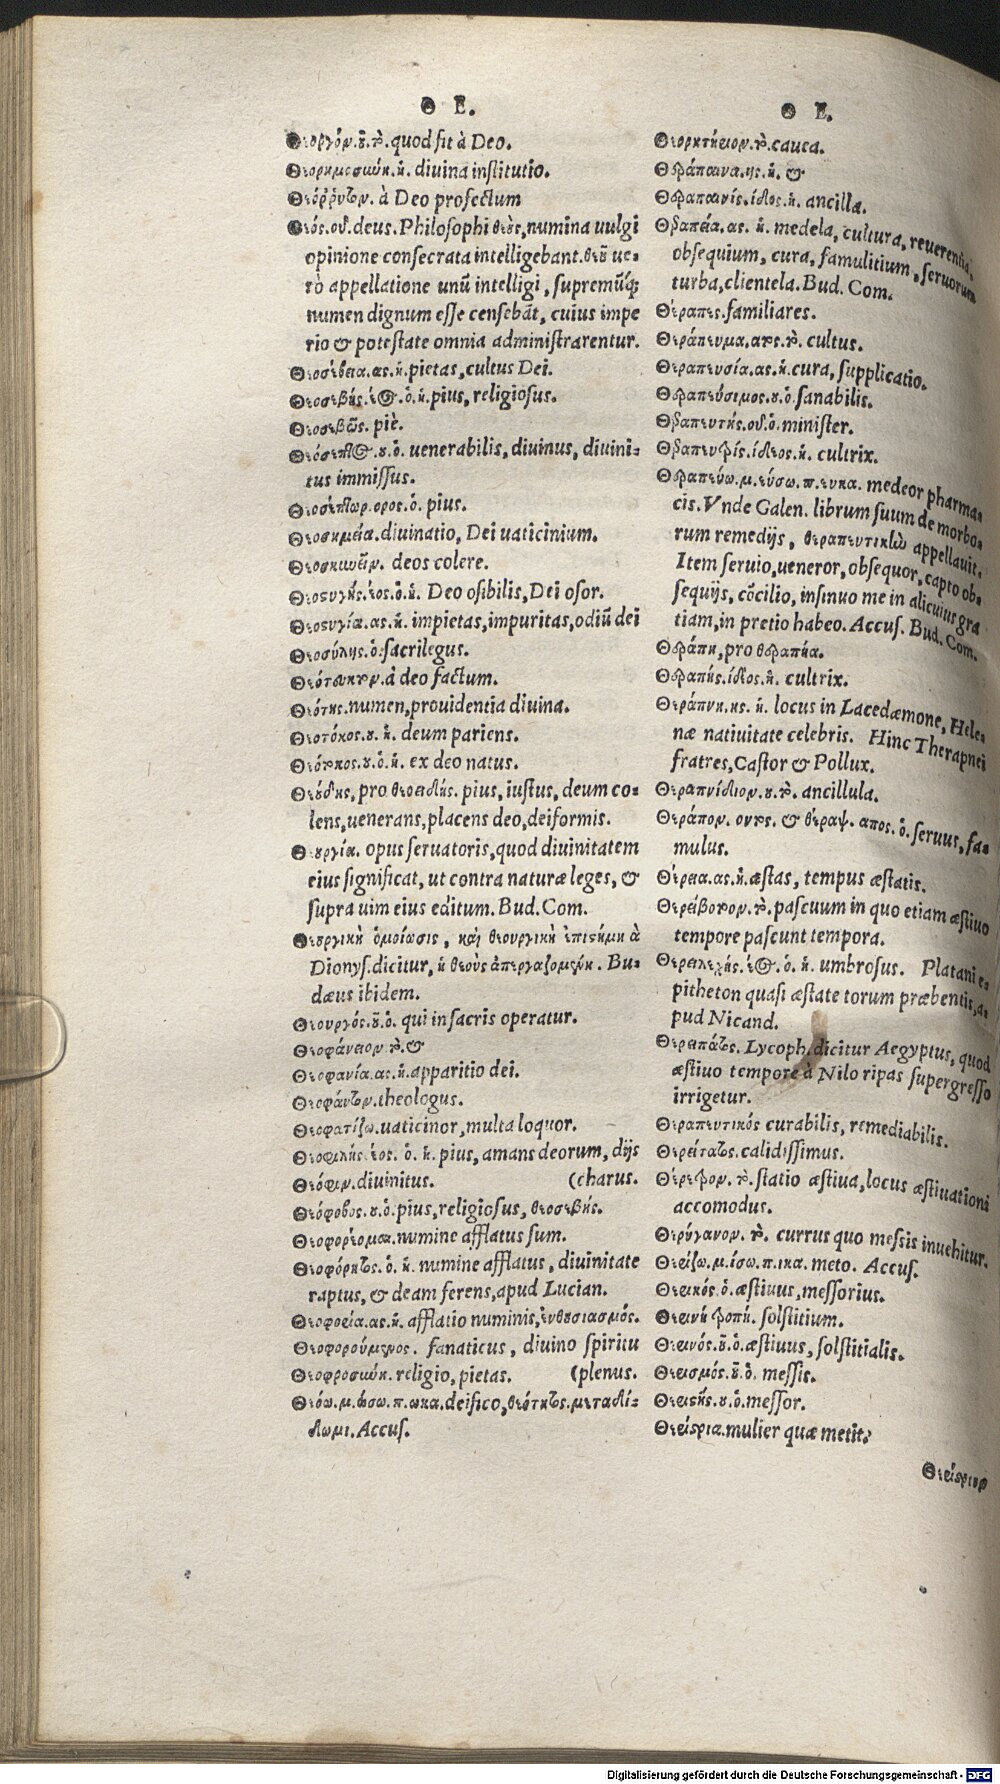 Θ Ε.
Θεοργόν. ȣ͂. τὸ. quod fit à Deo.
ἡ. diuina institutio.
Θεόῤῥυτον. à Deo profectum
Θεός. οῦ. deus. Philosophi θεὸς, numina uulgi
opinione consecrata intelligebant. θεȣ͂ ue-
rò appellatione unũ intelligi, supremũq́;
numen dignum esse censebãt, cuius impe
rio & potestate omnia administrarentur.
Θεοσέβεια. ας. ἡ. pietas, cultus Dei.
Θεοσεβής. έος. ὁ. ἡ. pius, religiosus.
Θεοσεβῶς. piè.
Θεόσεπτος. ȣ. ὁ. uenerabilis, diuinus, diuini-
tus immissus.
Θεοσέπτωρ. ορος. ὁ. pius.
Θεοσημεία. diuinatio, Dei uaticinium.
deos colere.
Θεοστυγής. έος. ὁ. ἡ. Deo osibilis, Dei osor.
Θεοστυγία. ας. ἡ. impietas, impuritas, odiũ dei
Θεοσύλης. ὁ. sacrilegus.
Θεότευκτον. à deo factum.
Θεότης. numen, prouidentia diuina.
Θεοτόκος. ȣ. ἡ. deum pariens.
Θεότοκος. ȣ. ὁ. ἡ. ex deo natus.
Θεύδης, pro θεοειδής. pius, iustus, deum co-
lens, uenerans, placens deo, deiformis.
Θεȣργία. opus seruatoris, quod diuinitatem
eius significat, ut contra naturæ leges, &
supra uim eius editum. Bud. Com.
Θεȣργικὴ ὁμοίωσις, καὶ θεουργικὴ ἐπιστήμη à
Dionys. dicitur, ἡ θεοὺς ἀπεργαζομένη. Bu-
dæus ibidem.
Θεουργός. ȣ͂. ὁ. qui in sacris operatur.
Θεοφάνειον. τὸ. &
Θεοφανία. ας. ἡ. apparitio dei.
Θεοφάντων. theologus.
Θεοφατίζω. uaticinor, multa loquor.
Θεοφιλής. έος. ὁ. ἡ. pius, amans deorum, dijs
Θεόφιν. diuinitus. (charus.
Θεόφοβος. ȣ. ὁ. pius, religiosus, θεοσεβής.
Θεοφορέομαι. numine afflatus sum.
Θεοφόρητος. ὁ. ἡ. numine afflatus, diuinitate
raptus, & deam ferens, apud Lucian.
Θεοφορία. ας. ἡ. afflatio numinis, ἐνθουσιασμός.
Θεοφορούμενος. fanaticus, diuino spiritu
Θεοφροσύνη. religio, pietas. (plenus.
Θεόω. μ. ώσω. π. ωκα. deifico, θεότητος μεταδί-
δωμι. Accus.
Θ Ε.
τὸ. cauea.
Θεράπαινα. ης. ἡ. &
Θεραπαινίς. ίδος. ἡ. ancilla.
Θεραπεία. ας. ἡ. medela, cultura, reuerentia,
obsequium, cura, famulitium, seruorum
turba, clientela. Bud. Com.
Θέραπες. familiares.
Θεράπευμα. ατος. τὸ. cultus.
Θεραπευσία. ας. ἡ. cura, supplicatio.
Θεραπεύσιμος. ȣ. ὁ. sanabilis.
Θεραπευτής. οῦ. ὁ. minister.
Θεραπευτρίς. ίδος. ἡ. cultrix.
Θεραπεύω. μ. εύσω. π. ευκα. medeor pharma-
cis. Vnde Galen. librum suum de morbo-
rum remedijs, θεραπευτικὼ appellauit.
Item seruio, ueneror, obsequor, capto ob-
sequijs, cõcilio, insinuo me in alicuius gra
tiam, in pretio habeo. Accus. Bud. Com.
Θεράπη, pro θεραπεία.
Θεραπής. ίδος. ἡ. cultrix.
Θεράπνη. ης. ἡ. locus in Lacedæmone, Hele-
næ natiuitate celebris. Hinc Therapnei
fratres, Castor & Pollux.
Θεραπνίδιον. ȣ. τὸ. ancillula.
Θεράπον. οντος. & θέραψ. απος. ὁ. seruus, fa-
mulus.
Θέρεια. ας. ἡ. æstas, tempus æstatis.
Θερείβοτον. τὸ. pascuum in quo etiam æstiuo
tempore pascunt tempora.
Θερειλεχής. έος. ὁ. ἡ. umbrosus. Platani e-
pitheton quasi æstate torum præbentis, a-
pud Nicand.
Θερειπότος. Lycoph. dicitur Aegyptus, quod
æstiuo tempore à Nilo ripas supergresso
irrigetur.
Θεραπευτικός curabilis, remediabilis.
Θερείτατος. calidissimus.
Θέρετρον. τὸ. statio æstiua, locus æstiuationi
accomodus.
Θερύγανον. τὸ. currus quo messis inuehitur.
Θερίζω. μ. ίσω. π. ικα. meto. Accus.
Θερικός. ὁ. æstiuus, messorius.
Θερινὴ τροπή. solstitium.
Θερινός. ȣ͂. ὁ. æstiuus, solstitialis.
Θερισμός. ȣ͂. ὁ. messis.
Θεριστής. ȣ. ὁ. messor.
Θερίστρια. mulier quæ metit.
Θερίστριον
Digitalisierung gefördert durch die Deutsche Forschungsgemeinschaft - DFG